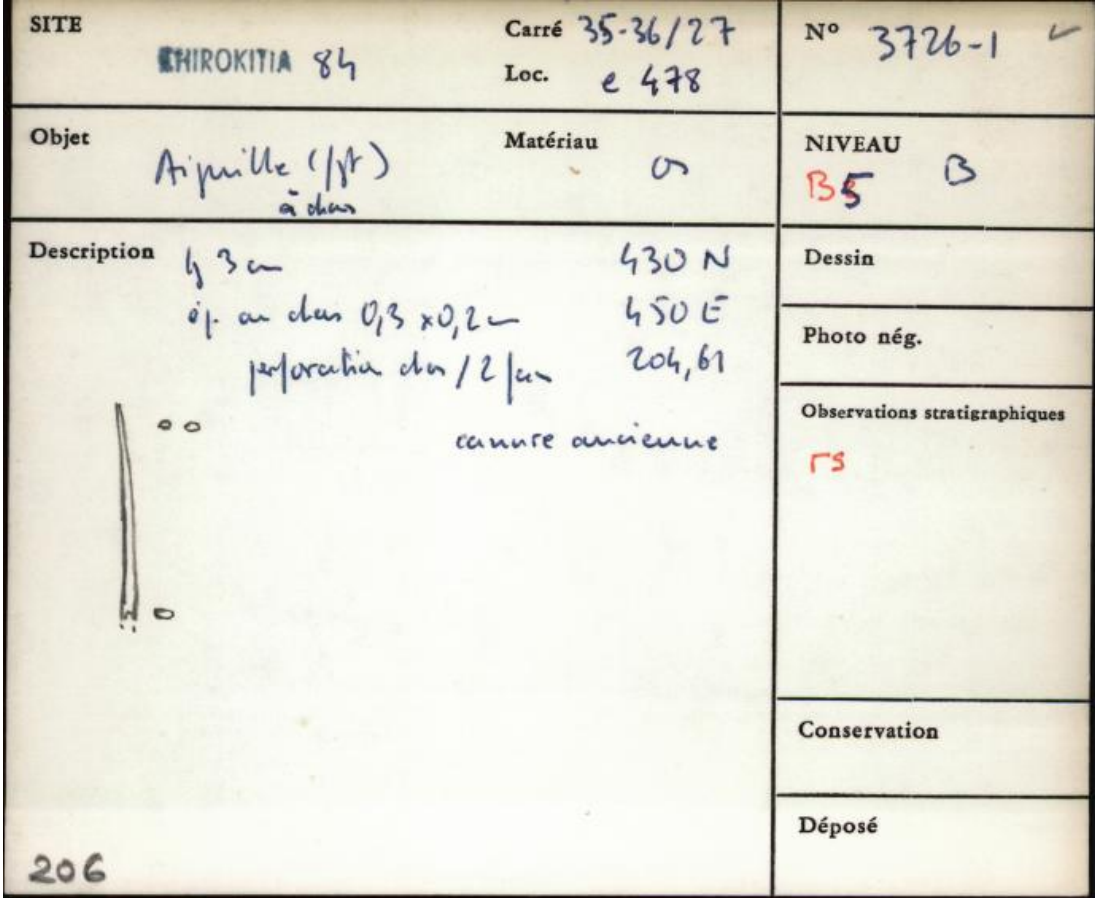 SITE
KHIROKITIA 84
Carré 35-36/27
Loc. e 478
N° 3726-1
Objet
Aiguille (fgt)
à chas
Matériau
os
NIVEAU
B5 B
Description
430 N
ép. au chas 0,3 x 0,2 cm 450 E
perforation chas / 2 faces 204,61
cassure ancienne
Dessin
Photo nég.
Observations stratigraphiques
rs
Conservation
Déposé
206